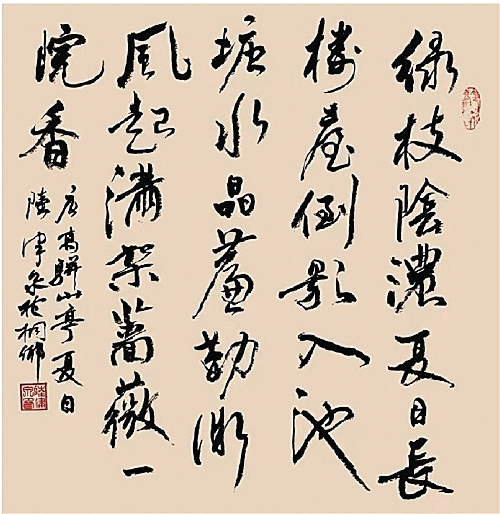 绿枝陰濃夏日長
楼臺倒影入池
塘水晶簾動微
風起滿架薔薇一
院香
唐高駢山亭夏日
陸津泉於桐鄉